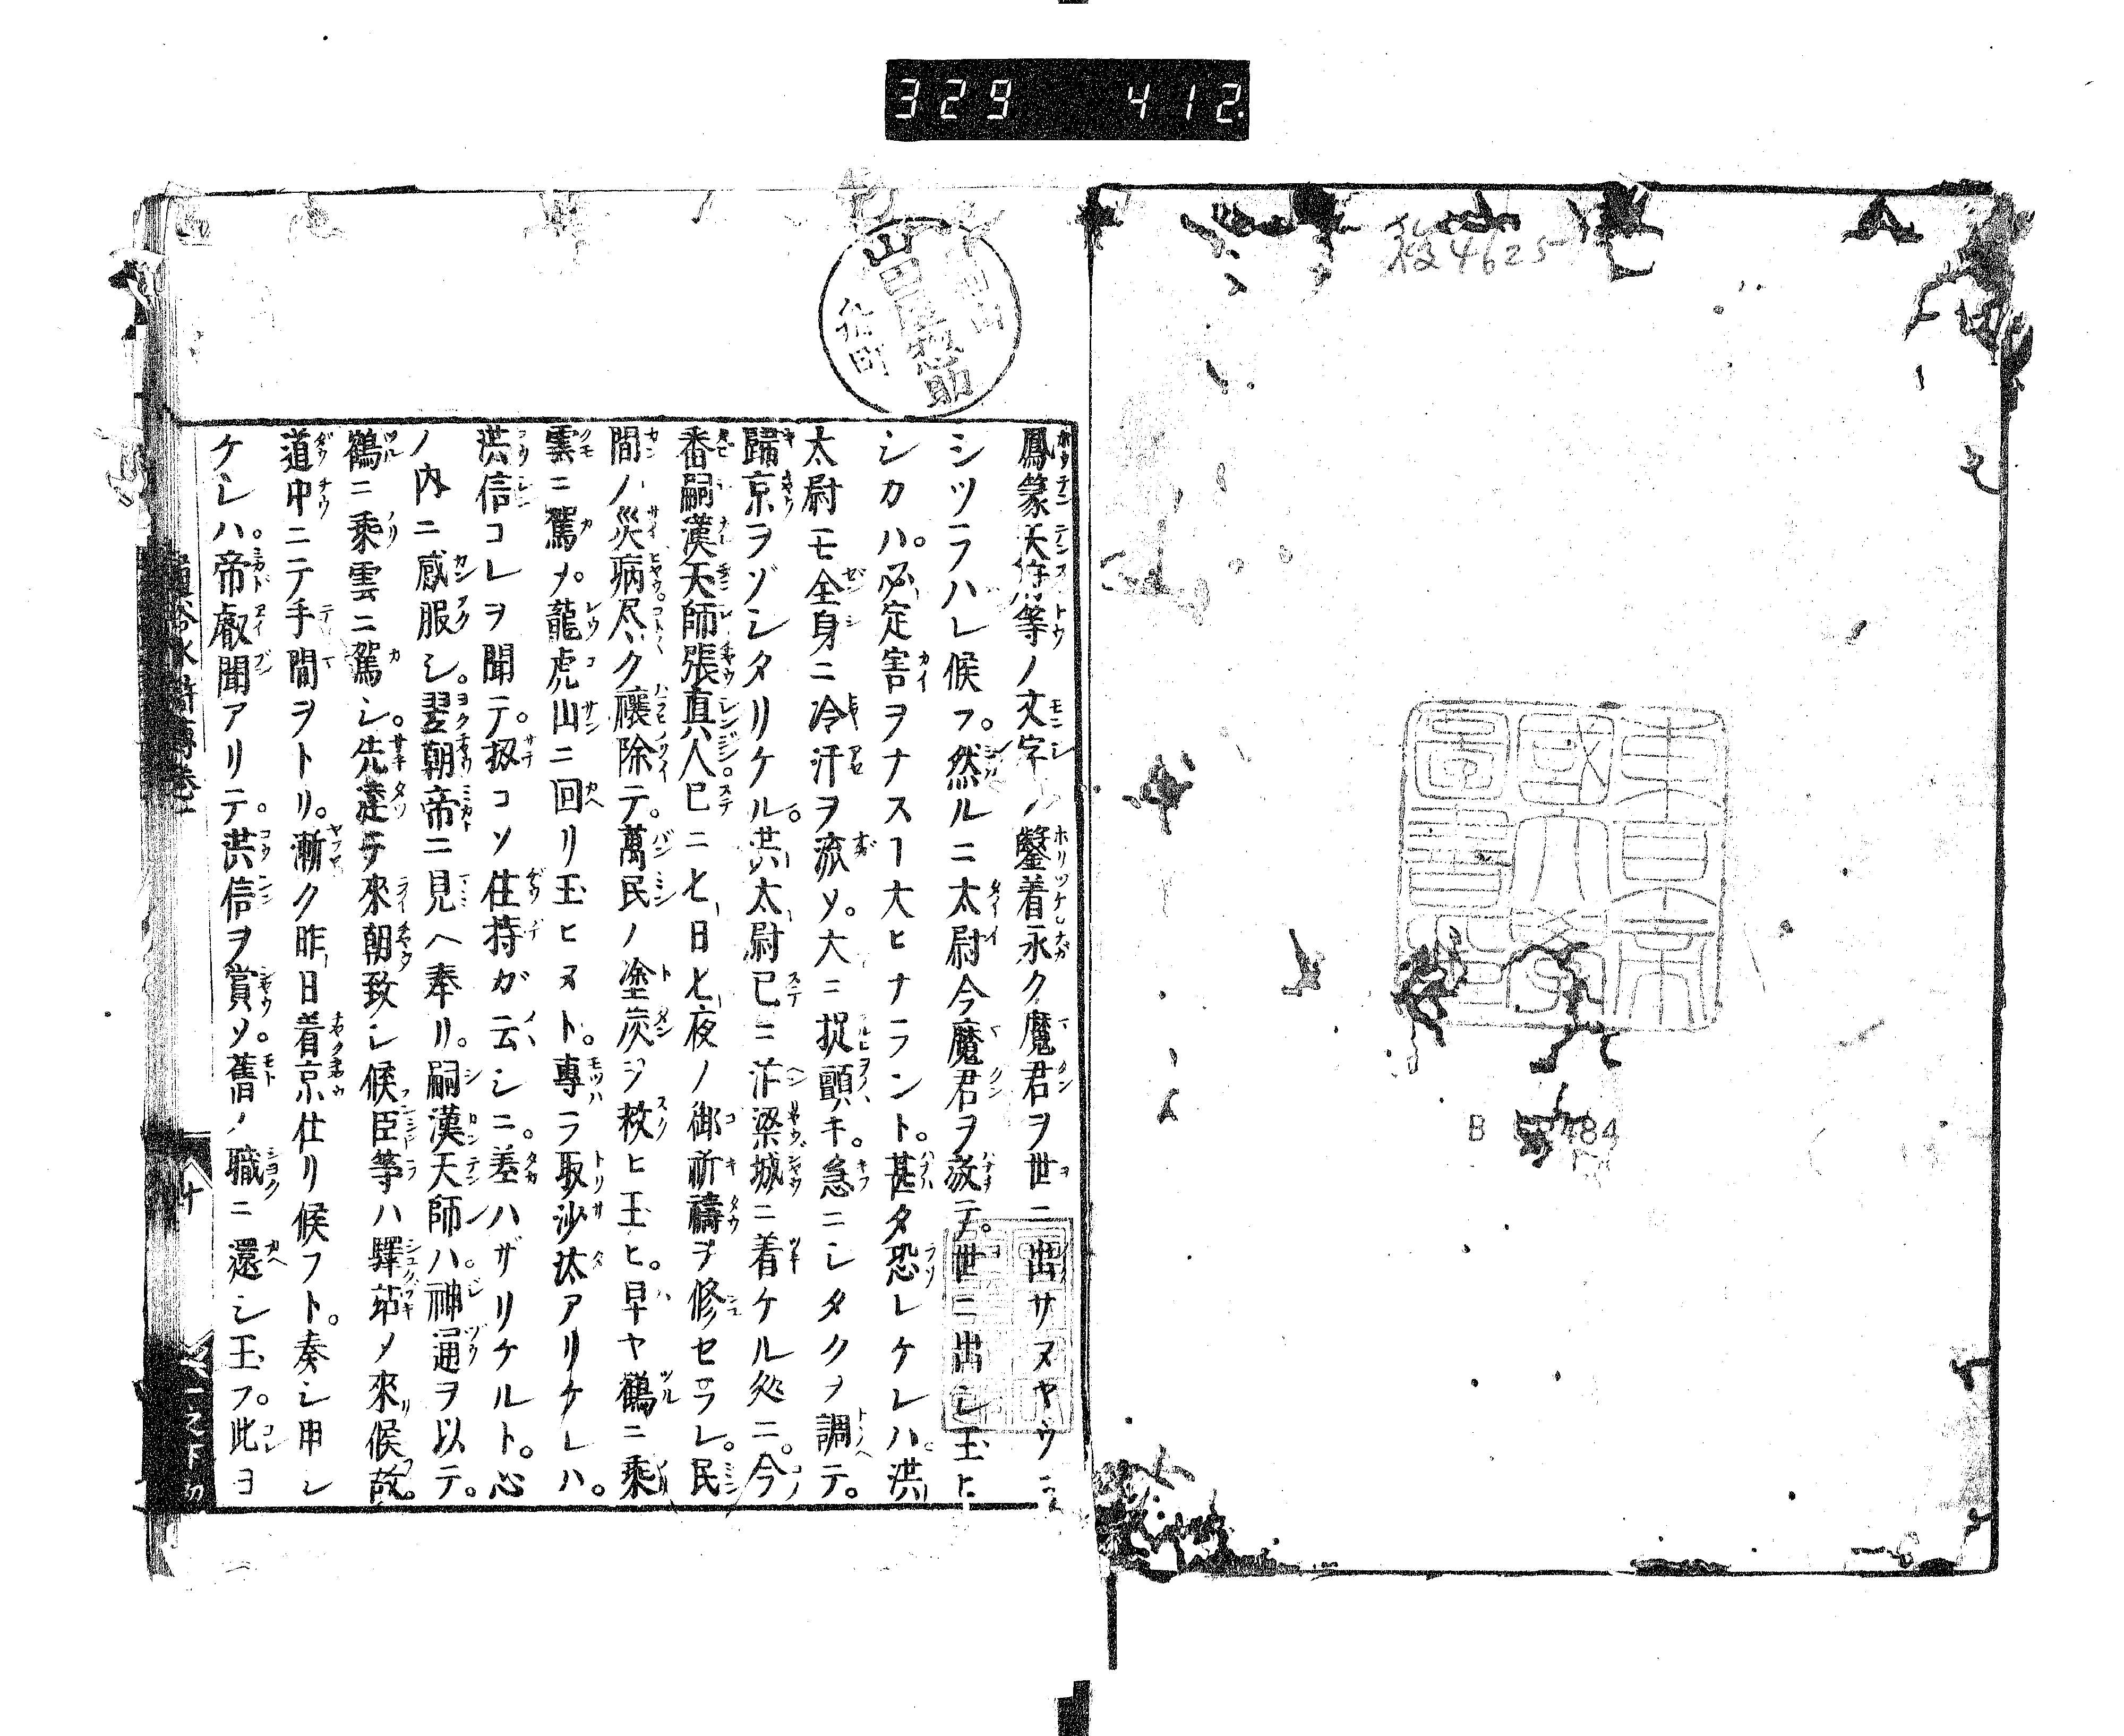 329 412
圖書印
國大學
東京帝
B 484
鳳篆天符等ノ文字ノ鑿着永ク魔君ヲ世ニ出サヌヤウニ
シツラハレ候フ。然ルニ太尉今魔君ヲ放テ。世ニ出シ玉ヒ
シカハ。必定害ヲナスヿ大ヒナラント。甚タ恐レケレハ。洪
太尉モ全身ニ冷汗ヲ流ソ。大ニ捉顫キ。急ニシタクヲ調テ。
歸京ヲゾシタリケル。洪太尉已ニ汴梁城ニ着ケル処ニ。今
番嗣漢天師張真人。已ニ七日七夜ノ御祈禱ヲ修セラレ。民
間ノ災病尽ク禳除テ。萬民ノ塗炭ヲ救ヒ玉ヒ。早ヤ鶴ニ乘
雲ニ駕ソ。龍虎山ニ回リ玉ヒヌト。專ラ取沙汰アリケレハ。
洪信コレヲ聞テ。扨コソ住持ガ云シニ。差ハザリケルト。心
ノ内ニ感服シ。翌朝帝ニ見ヘ奉リ。嗣漢天師ハ。神通ヲ以テ。
鶴ニ乘雲ニ駕シ。先達テ來朝致シ候臣等ハ驛站ソ來候故。
道中ニテ手間ヲトリ。漸ク昨日着京仕リ候フト。奏シ申シ
ケレハ。帝叡聞アリテ。洪信ヲ賞ソ。舊ノ職ニ還シ玉フ。此ヨ